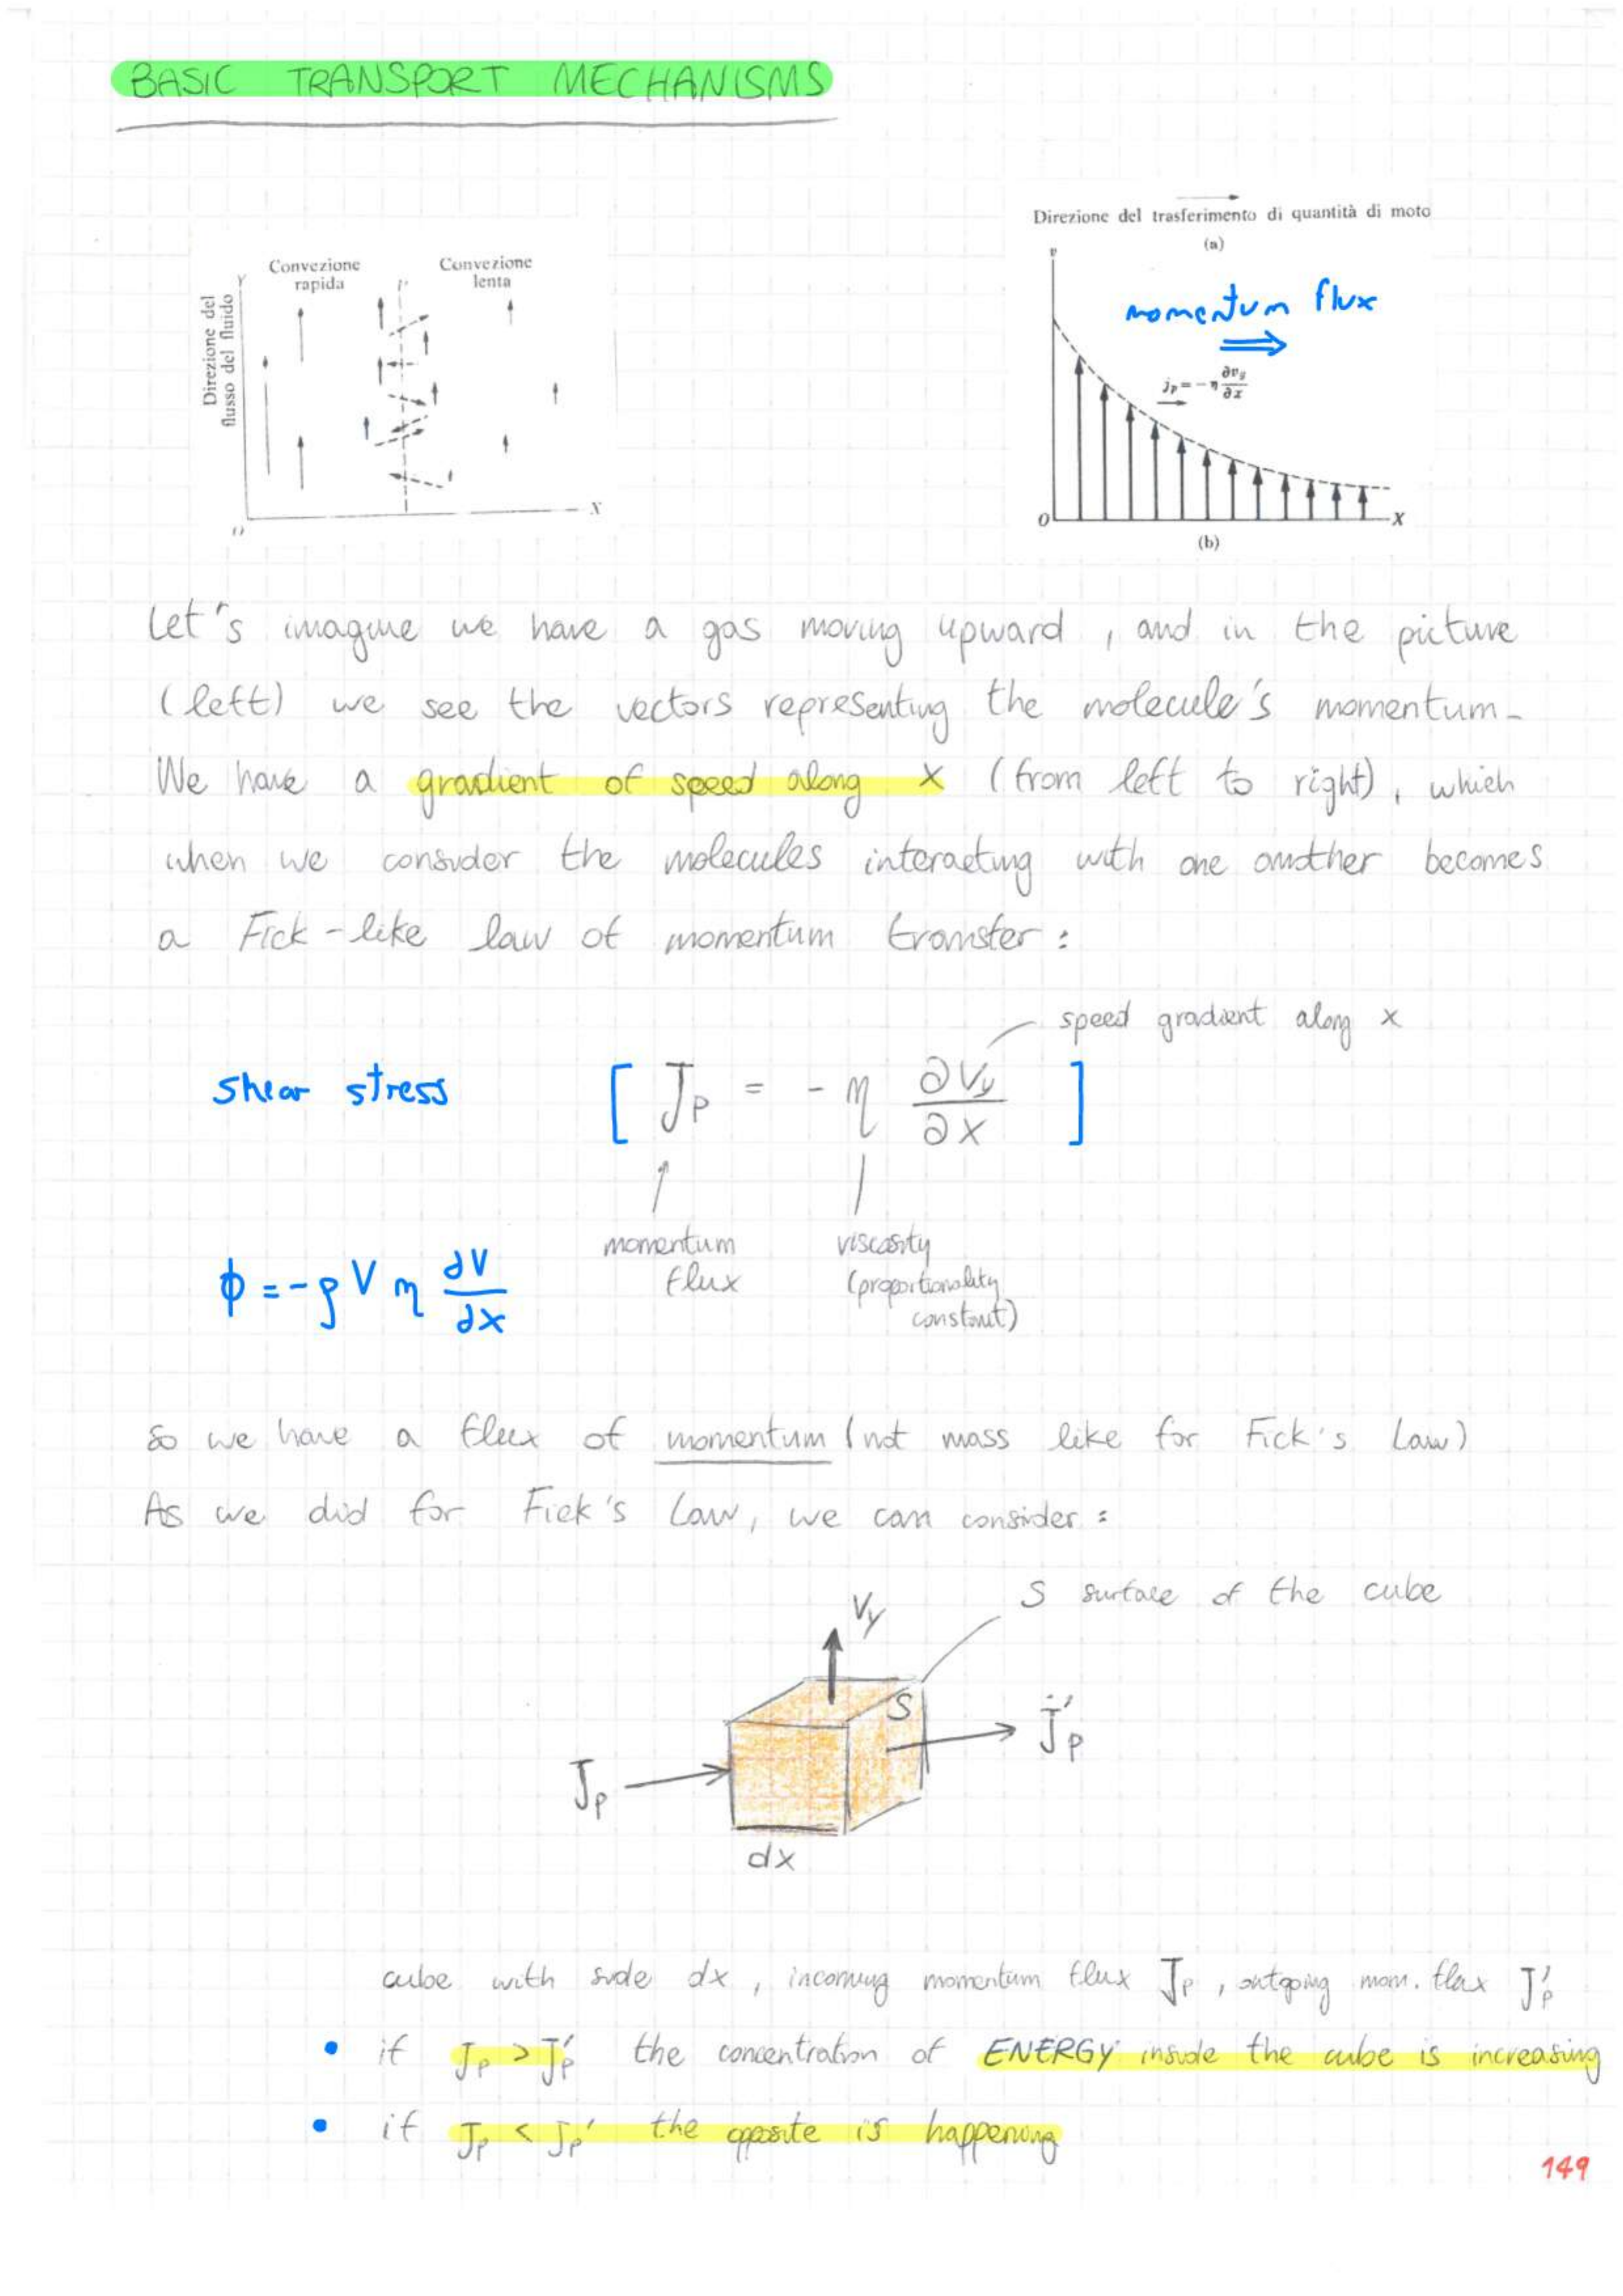 BASIC TRANSPORT MECHANISMS
Direzione del trasferimento di quantità di moto
(a)
Convezione rapida
Convezione lenta
Direzione del flusso del fluido
Y
P
X
O
v
momentum flux
⇒
jₚ = -η ∂vy/∂x
O
X
(b)
Let's imagine we have a gas moving upward, and in the picture
(left) we see the vectors representing the molecule's momentum.
We have a gradient of speed along x (from left to right), which
when we consider the molecules interacting with one another becomes
a Fick-like law of momentum transfer:
speed gradient along x
shear stress [ Jp = - η ∂Vy/∂x ]
momentum flux
viscosity (proportionality constant)
ϕ = -ρ V η ∂V/∂x
So we have a flux of momentum (not mass like for Fick's Law)
As we did for Fick's Law, we can consider:
S surface of the cube
Vy
S
J'p
Jp
dx
cube with side dx, incoming momentum flux Jp, outgoing mom. flux J'p
• if Jp > J'p the concentration of ENERGY inside the cube is increasing
• if Jp < Jp' the opposite is happening
149